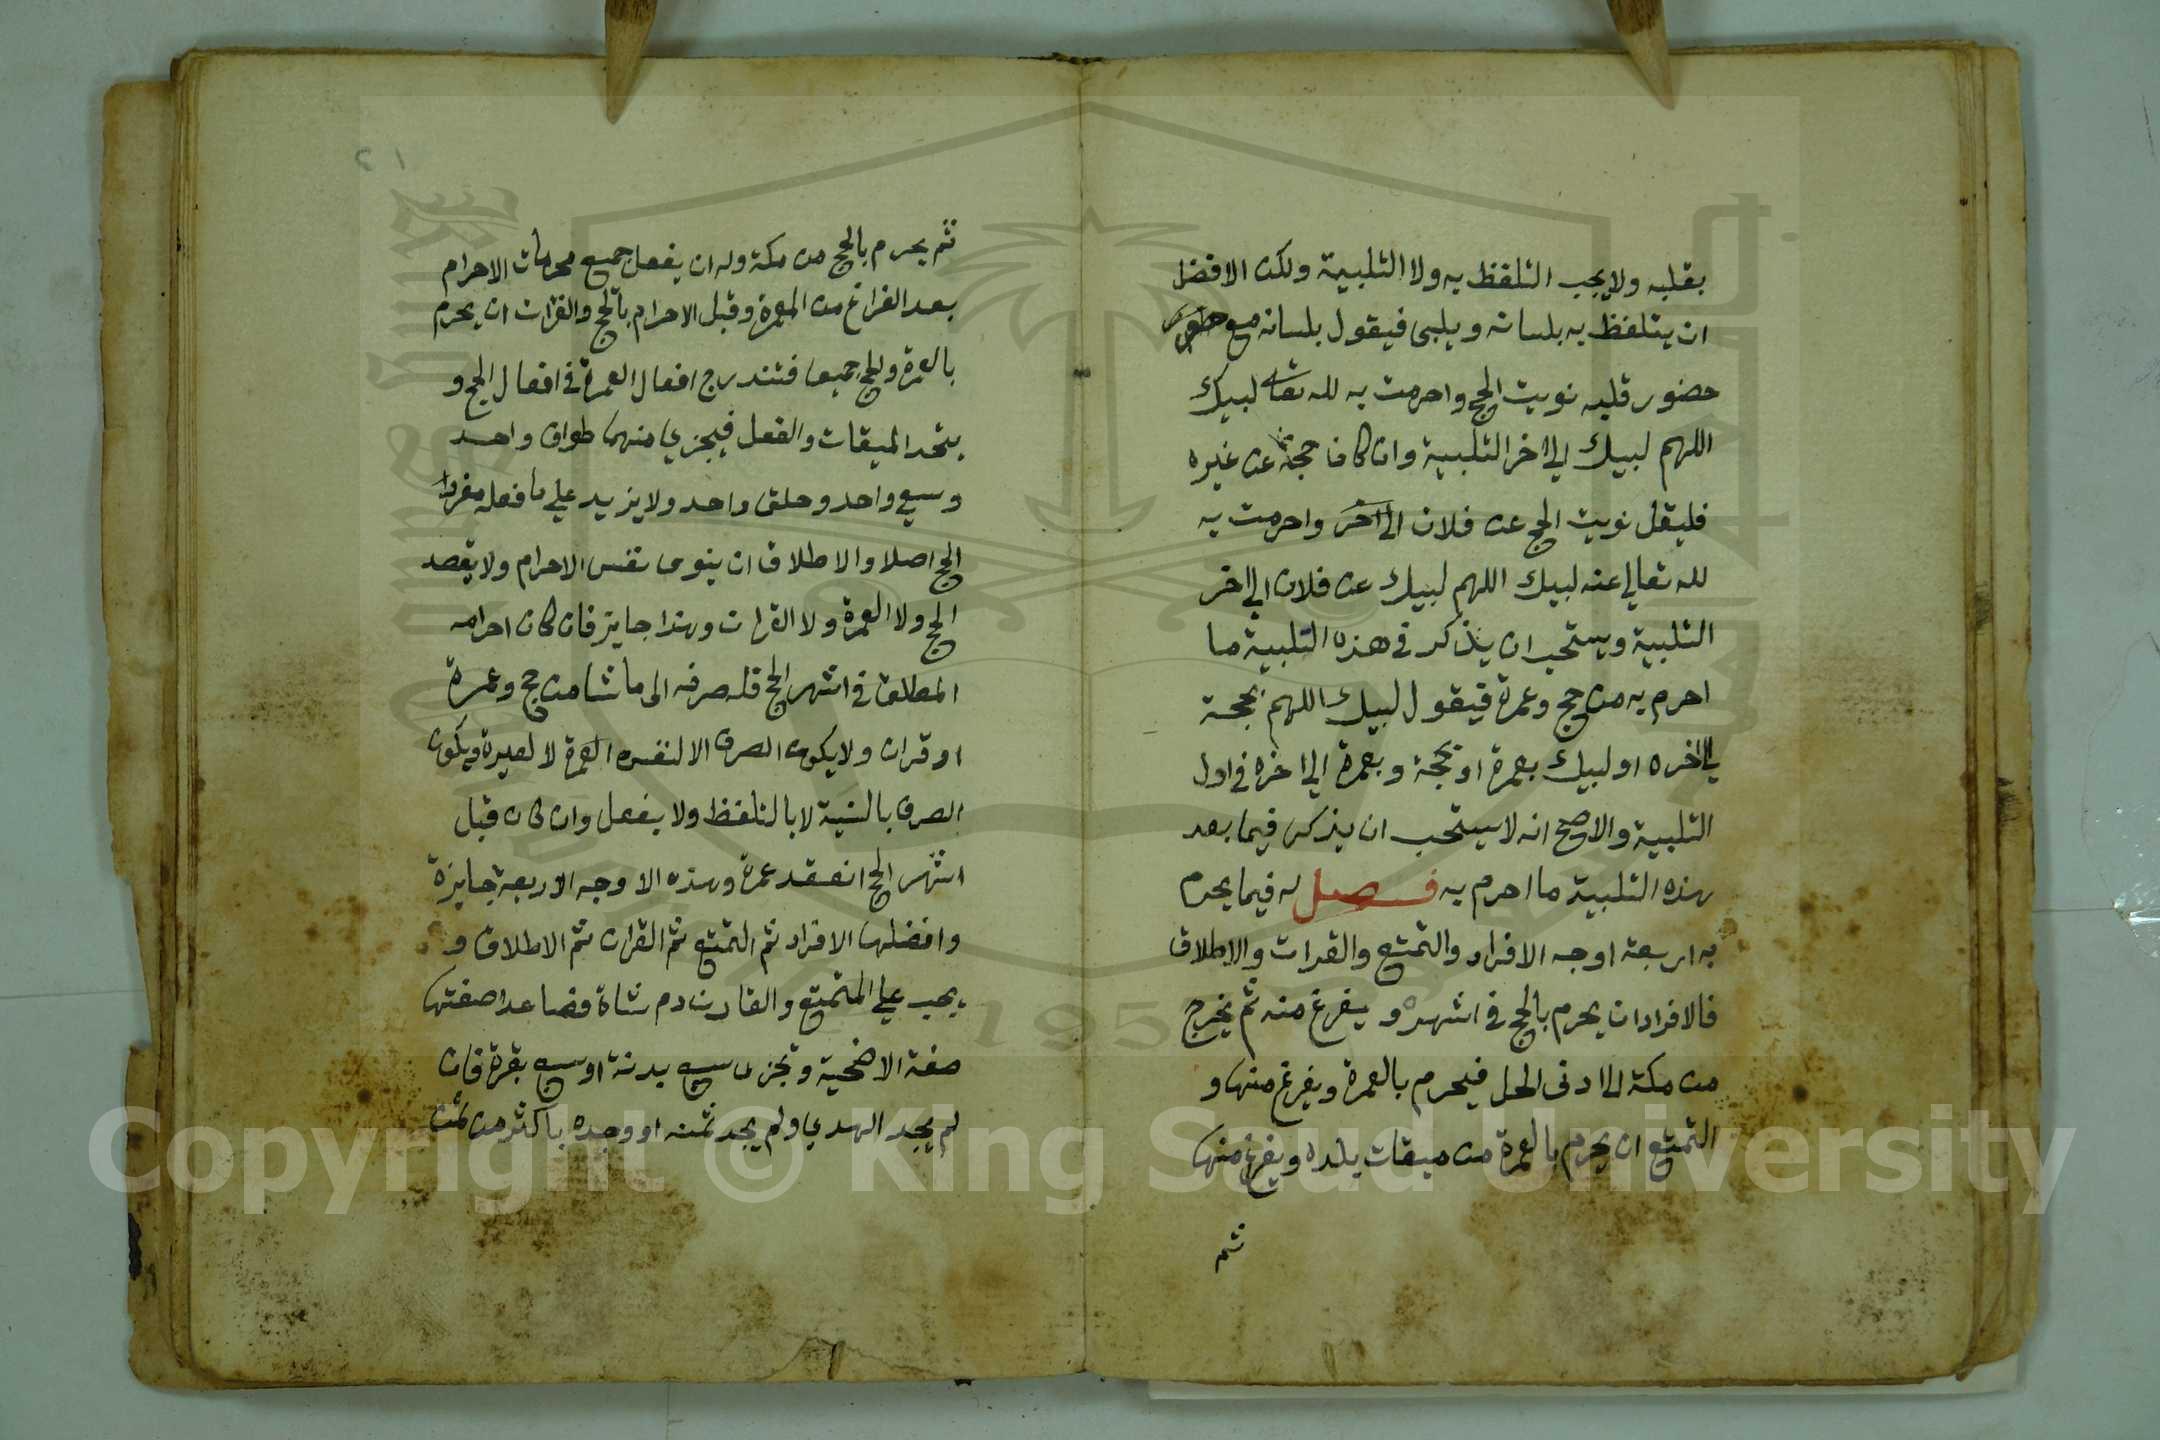 بقلبه ولا يجب التلفظ به ولا التلبية ولكن الافضل
ان يتلفظ به بلسانه ويلبى فيقول بلسانه مع
حضور قلبه نويت الحج واحرمت به لله تعالى لبيك
اللهم لبيك الي اخر التلبية وان كان حجه عن غيره
فليقل نويت الحج عن فلان الى اخر واحرمت به
لله تعالي عنه لبيك اللهم لبيك عن فلان الي اخر
التلبية ويستحب ان يذكر في هذه التلبية ما
احرم به من حج وعمرة فيقول لبيك اللهم بحجة
الي اخره او لبيك بعمرة او بحجة وبعمرة الي اخره في اول
التلبية والاصح انه لا يستحب ان يذكر فيما بعد
هذه التلبية ما احرم به فصل له فيما يحرم
به اربعة اوجه الافراد والتمتع والقران والاطلاق
فالافراد ان يحرم بالحج في اشهره ويفرغ منه ثم يخرج
من مكة الى ادنى الحل فيحرم بالعمرة ويفرغ منها و
التمتع ان يحرم بالعمرة من ميقات بلده ويفرغ منها
ثم
٢١
ثم يحرم بالحج من مكة وله ان يفعل جميع محرمات الاحرام
بعد الفراغ من العمرة وقبل الاحرام بالحج والقران ان يحرم
بالعمرة والحج جميعا فتندرج افعال العمرة في افعال الحج و
يتحد الميقات والفعل فيجزي منهما طواف واحد
وسعي واحد وحلق واحد ولا يزيد علي ما فعله مفرد
الحج اصلا والاطلاق ان ينوى نفس الاحرام ولا يقصد
الحج ولا العمرة ولا القران وهذا جايز فان كان احرامه
المطلق في اشهر الحج فله صرفه الى ما شا من حج وعمرة
او قران ولا يكون الصرف الا لنفس العمرة لا لغيره ويكون
الصرف بالنية لا بالتلفظ ولا بفعل وان كان قبل
اشهر الحج انعقد عمرة وهذه الاوجه الاربعة جايزة
وافضلها الافراد ثم التمتع ثم القران ثم الاطلاق و
يجب علي المتمتع والقارن دم شاة فصاعدا صفتها
صفة الاضحية وتجزى سبع بدنة او سبع بقرة فان
لم يجد الهدي او لم يجد ثمنه او وجده باكثر من ثمن
Copyright © King Saud University
1957